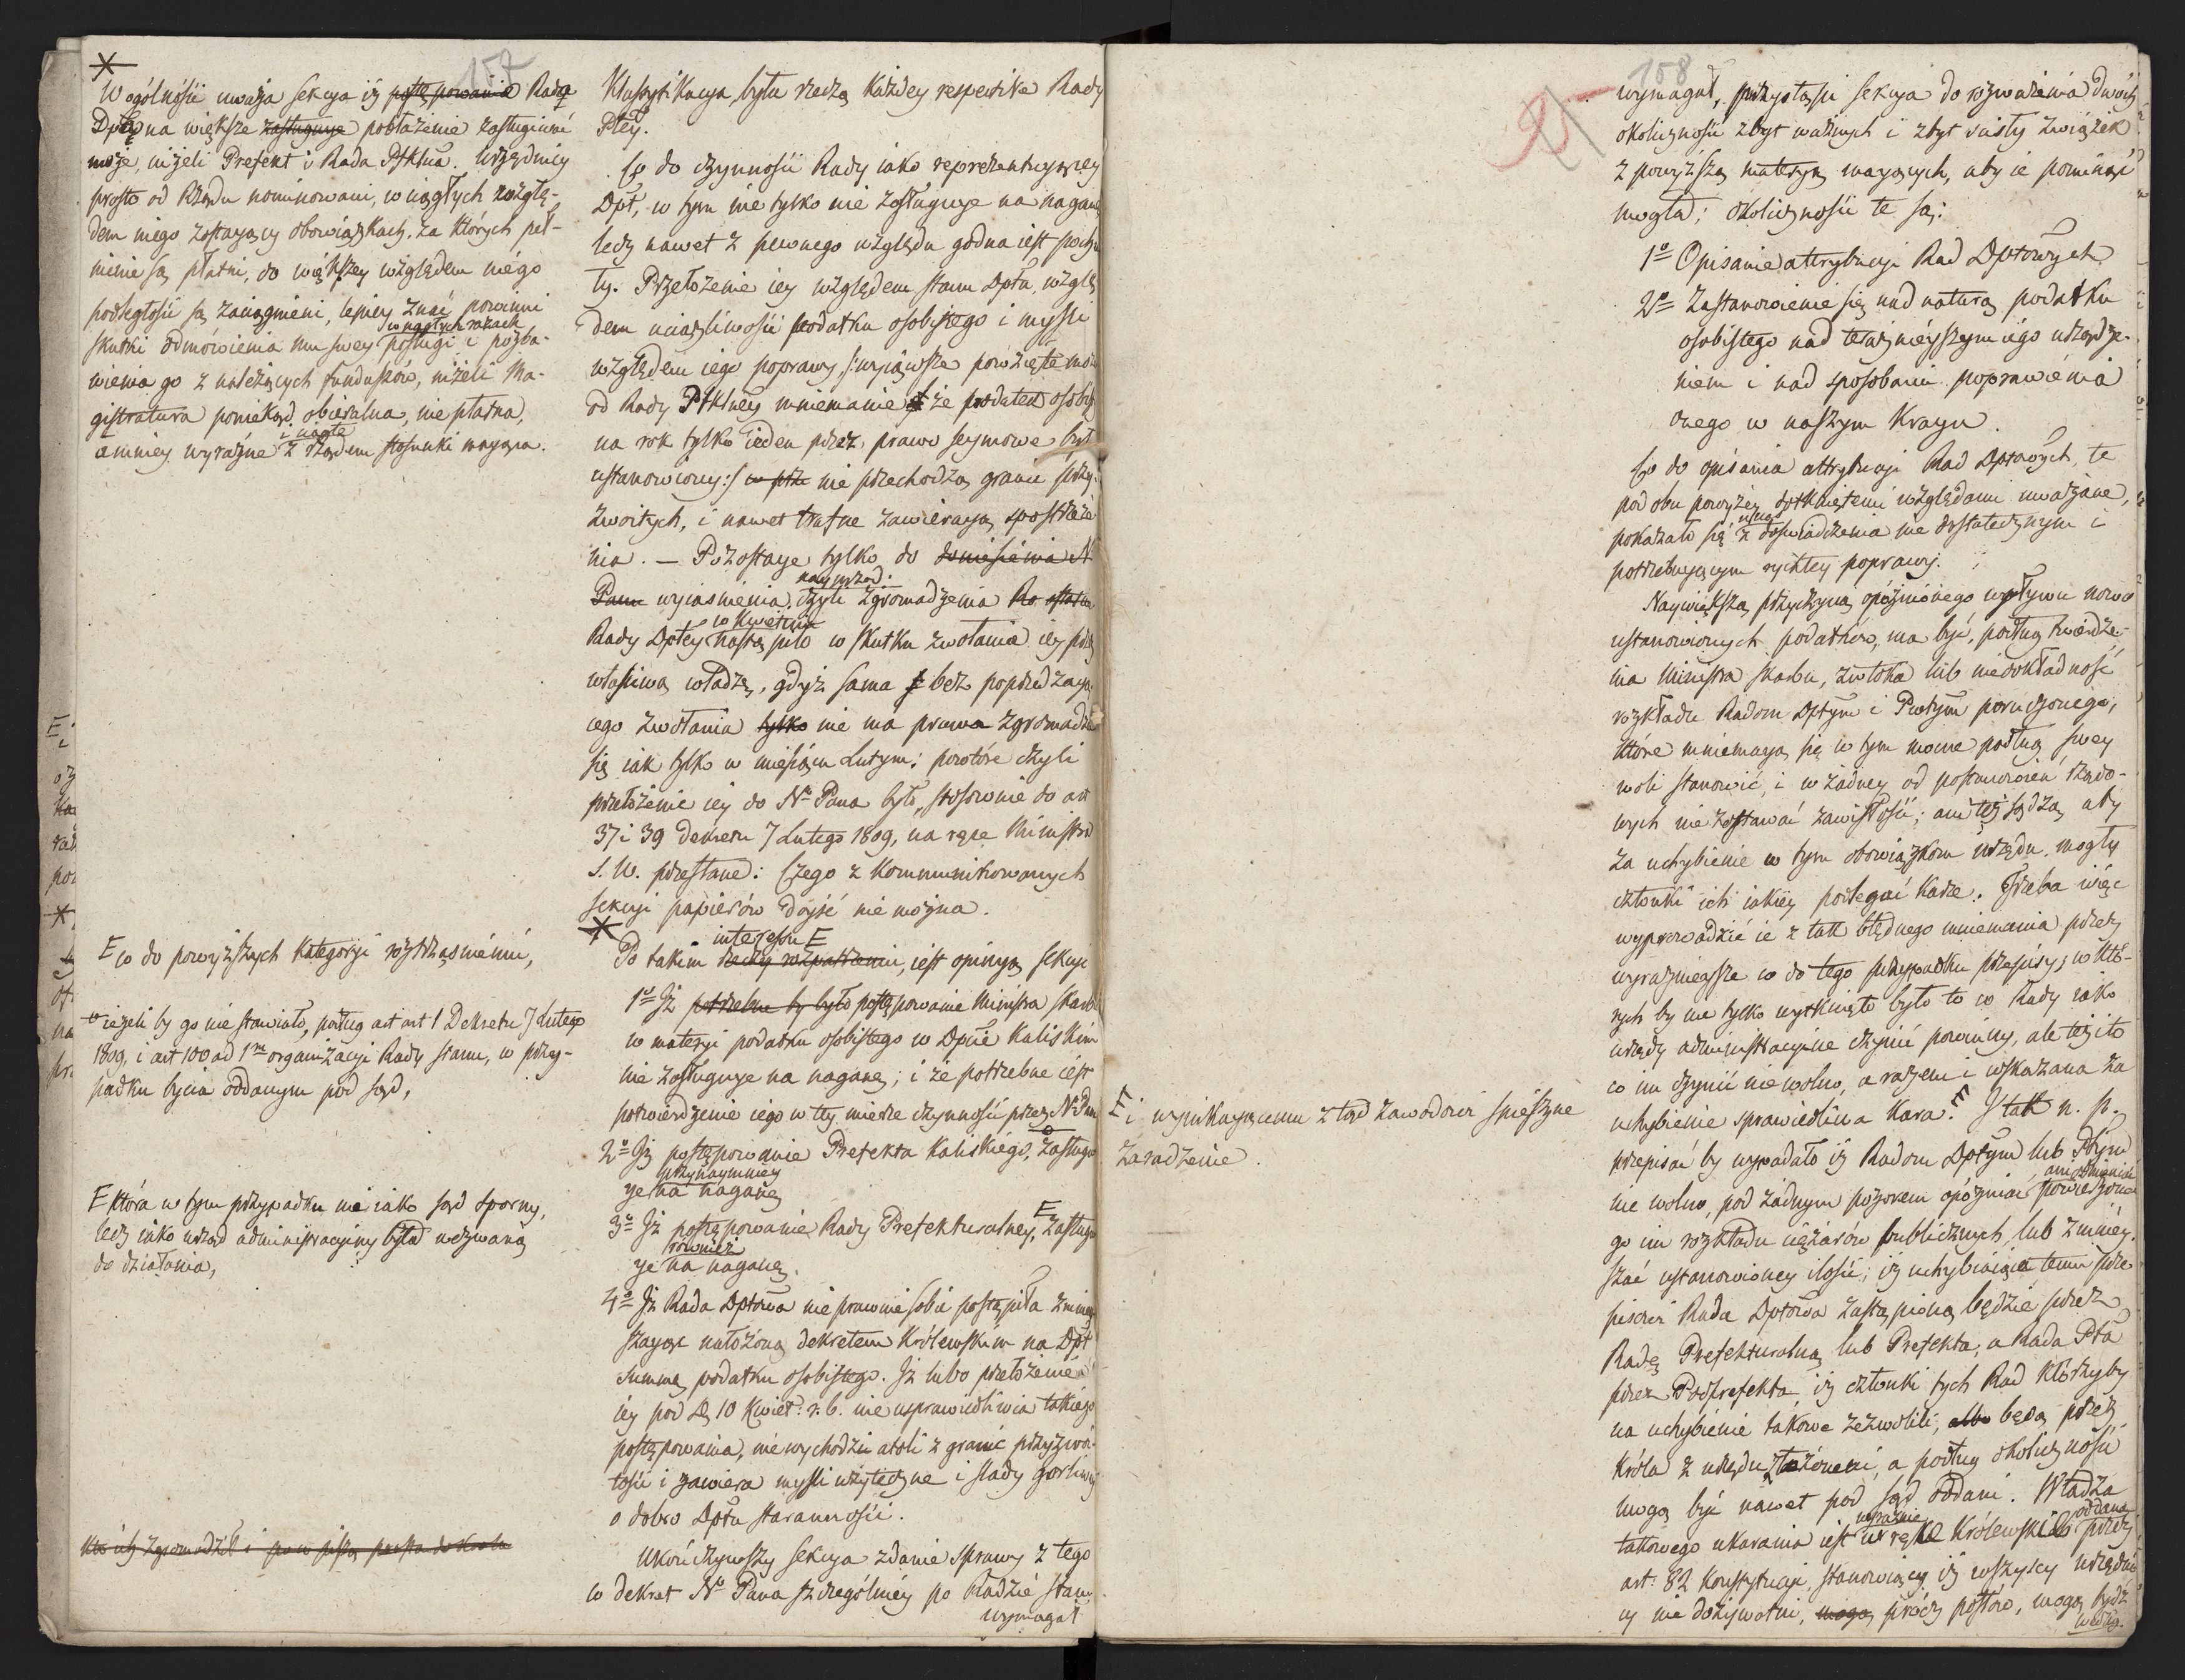 157
W ogólności uważa sekcya iż postępowanie Rada
Dptą na większe zasługuje pobłażenie zasługiwać
może, niżeli Prefekt i Rada Pfktna. Urzędnicy
prosto od Rządu nominowani, w ciągłych wzglę-
dem niego zostaiący obowiązkach, za których peł-
nienie są płatni, do większey względem niego
podległości są zaciągnieni, lepiey znać powinni
skutki odmówienia mu swey w nagłych razach posługi i pozba-
wienia go z należących funduszów, niżeli Ma-
gistratura poniekąd obieralna, nie płatna,
a mniey wyraźne i nagłe z rządem stosunki maiąca.
E co do powyższych kategoryi roztrząśnieniu,
ieżeli by go nie stawiało, podług art 1 Dekretu 7 Lutego
1809, i art 100 ad 1m organizacyi Rady stanu, w przy-
padku bycia oddanym pod sąd,
E która w tym przypadku nie iako sąd sporny,
lecz iako urząd administracyiny była wezwaną
do działania,
Klassyfikacya, była rzeczą każdey respective Rady
Ptey.
Co do czynności Rady iako reprezentuiącey
Dpt, w tym nie tylko nie zasługuje na naganę
lecz nawet z pewnego względu godna iest pochwa
ły. Przełożenie iey względem stanu Dptu, wzglę
dem uciążliwości podatku osobistego i myśli
względem iego poprawy /:wyiąwszy powzięte
od Rady Pfktney mniemanie że podatek osobis
na rok tylko ieden przez prawo seymowe był
ustanowiony:/ nie przechodzą granic przy-
zwoitych, i nawet trafne zawieraią spostrzeże
nia. — Pozostaie tylko do doniesienia N.
Panu wyiaśnienia, nayprzod: czyli zgromadzenie
Rady Dptey w Kwietniu nastąpiło w skutku zwołania iey przez
właściwą władzę, gdyż sama bez poprzedzaią-
cego zwołania tylko nie ma prawa zgromadzać
się iak tylko w miesiącu Lutym; powtóre czyli
przełożenie iey do No Pana było, stosownie do art
37 i 39 dekretu 7 Lutego 1809, na ręce Ministra
S. W. przesłane: Czego z kommunikowanych
sekcyi papierów doyść nie można.
Po takim rzeczy rozpatrzeniu, interessu E iest opinyą sekcyi
1o Iż potrzebne by było postępowanie Ministra skarbu
w materyi podatku osobistego w Dpcie Kaliskim
nie zasługuje na naganę; i że potrzebne iest
potwierdzenie iego w tey mierze czynności przez N. Pana
2o Iż postępowanie Prefekta Kaliskiego, zasługu
ie przynaymniey na naganę
3o Iż postępowanie Rady Prefekturalney, E zasługu
ie również na naganę.
4o Iż Rada Dptowa nieprawnie sobie postąpiła zmniey
szaiąc nałożoną dekretem Królewskim na Dpt
summę podatku osobistego. Iż lubo przełożenie
iey pod d. 10 Kwiet: r. b. nie usprawiedliwia takiego
postępowania, nie wychodzi atoli z granic przyzwoi-
tości i zawiera myśli użyteczne i ślady gorliwey
o dobro Dptu staranności.
Ukończywszy sekcya zdanie sprawy z tego
co dekret No Pana szczególniey po Radzie stanu
wymagał
158
wymagał, przystąpi sekcya do rozważenia dwóch
okoliczności zbyt ważnych i zbyt ścisły związek
z powyższą materyą maiących, aby ie pominąć
mogła; okoliczności te są:
1o Opisanie attrybucyi Rad Dptowych
2o Zastanowienie się nad naturą podatku
osobistego nad teraźnieyszym iego urządze-
niem i nad sposobami poprawienia
onego w naszym Kraiu.
Co do opisania attrybucyi Rad Dptowych, te
pod obu powyżey dotkniętemi względami uważane,
pokazało się z doświadczenia nie dostatecznym i
potrzebuiącym rychłey poprawy.
Naywiększą przyczyną opóźnionego wpływu nowo
ustanowionych podatków, ma być, podług twierdze-
nia Ministra skarbu, zwłoka lub niedokładność
rozkładu Radom Dptym i Powtym poruczonego,
które mniemaią się w tym mocne podług swey
woli stanowić, i w żadney od postanowień rządo-
wych nie zostawać zawisłości; ani też sądzą aby
za uchybienie w tym obowiązkom urzędu, mogły
członki ich iakiey podlegać karze. Trzeba więc
wyprowadzić ie z tak błędnego mniemania przez
wyraźnieysze co do tego przypadku przepisy; w któ-
rych by nie tylko wytknięte było to co Rady iako
urzędy administracyine czynić powinny, ale też i to
co im czynić nie wolno, a razem i wskazana za
uchybienie sprawiedliwa kara. E I tak n. p.
E i wynikaiącemu z tąd zawodowi śpieszne
zaradzenie.
przepisać by wypadało iż Radom Dptym lub Ptym
nie wolno, pod żadnym pozorem opóźniać powierzone-
go im rozkładu ciężarów publicznych, lub zmniey-
szać ustanowioney ilości; iż uchybiaiąca temu prze
pisowi Rada Dptowa zastąpioną będzie przez
Radę Prefekturalną lub Prefekta, a Rada Pta
przez Podprefekta, iż członki tych Rad którzyby
na uchybienie takowe zezwolili, albo będą przez
Króla z urzędu złożeni, a podług okoliczności
mogą być nawet pod sąd oddani. Władza
takowego ukarania iest wyraźnie w ręce Królewskie oddana przez
art: 82 Konstytucyi, stanowiący iż wszyscy urzędni
cy nie dożywotni, mogą prócz posłów, mogą bydź
według